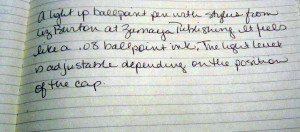 A light up ballpoint pen with stylus from
Liz Burton at Zumaya Publishing. It feels
like a .08 ballpoint ink. The light level
is adjustable depending on the position
of the cap.